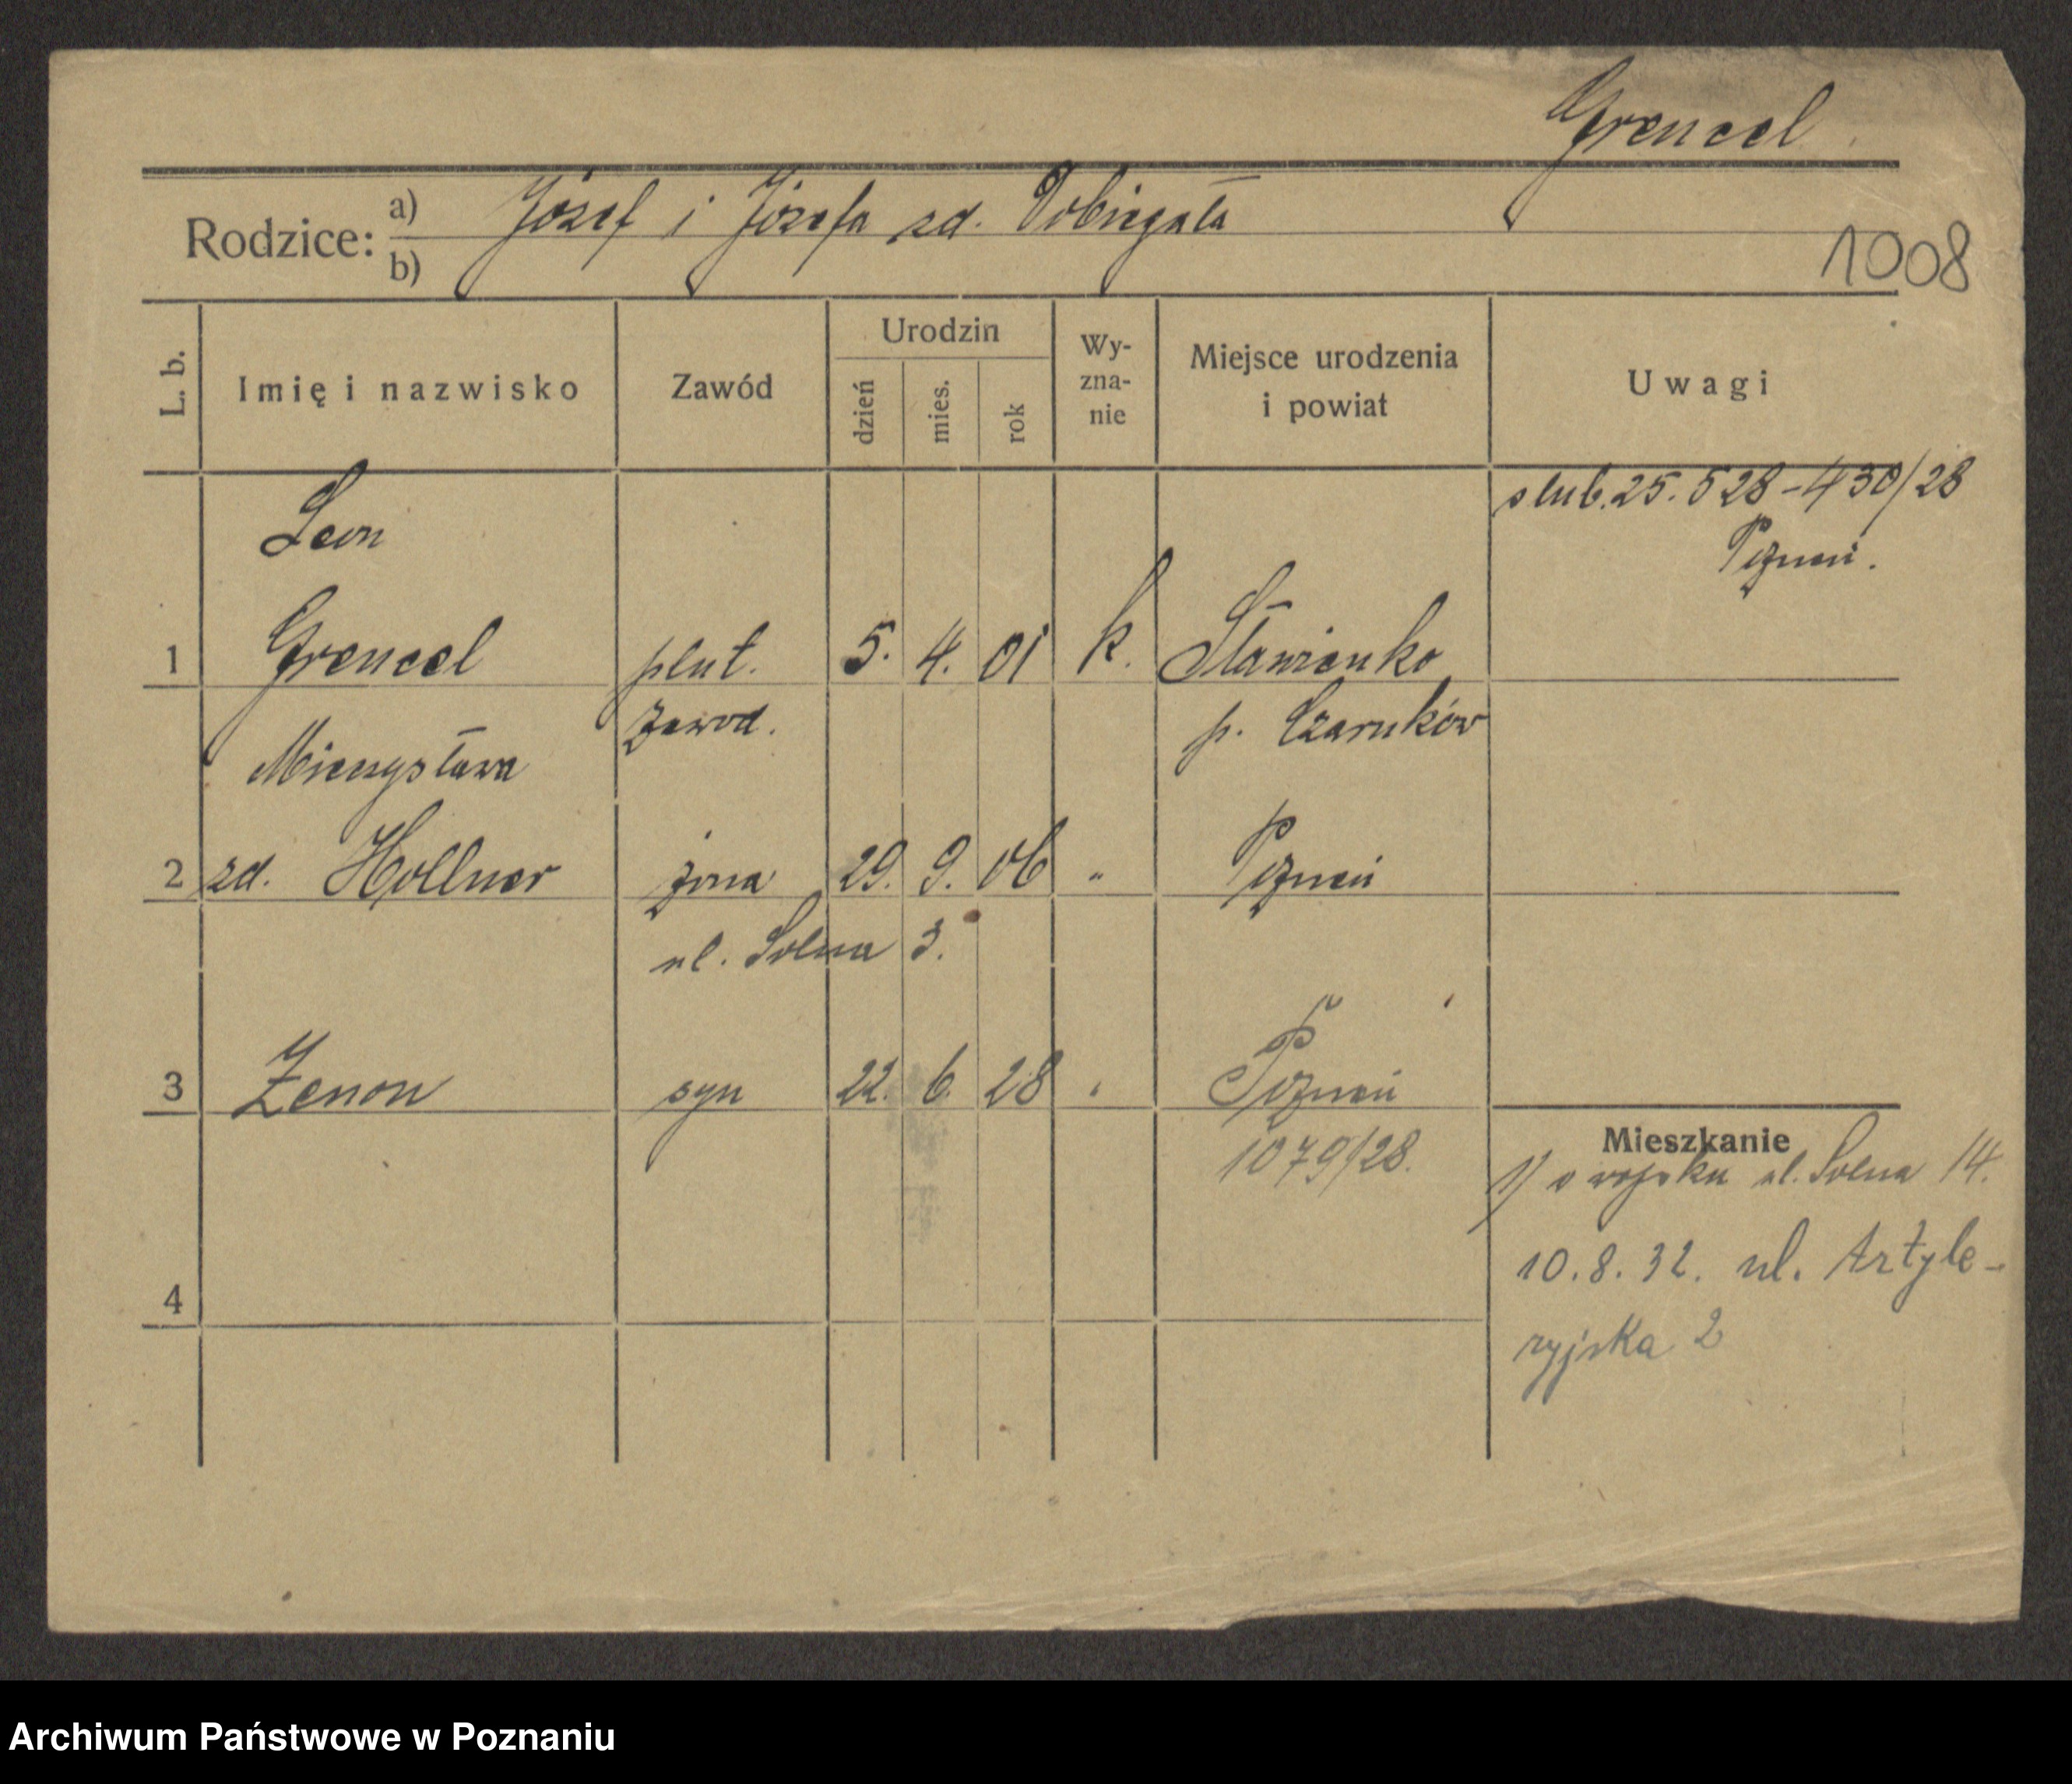 Grencel
Rodzice: a) Józef i Józefa zd. Dobiegała
b)
1008
L. b.
Imię i nazwisko
Zawód
Urodzin
dzień
mies.
rok
Wy-
zna-
nie
Miejsce urodzenia
i powiat
Uwagi
ślub. 25. 5 28 - 430/28
Poznań.
Leon
1 Grencel plut. 5. 4. 01 k. Sławienko
zawod. p. Czarnków
Mieczysława
2 zd. Hollner żona 29. 9. 06 " Poznań
ul. Solna 3.
3 Zenon syn 22. 6. 28 " Poznań
1079/28.
Mieszkanie
1) o wojsku ul. Solna 14.
4
10.8.32. ul. Artyle-
ryjska 2
Archiwum Państwowe w Poznaniu